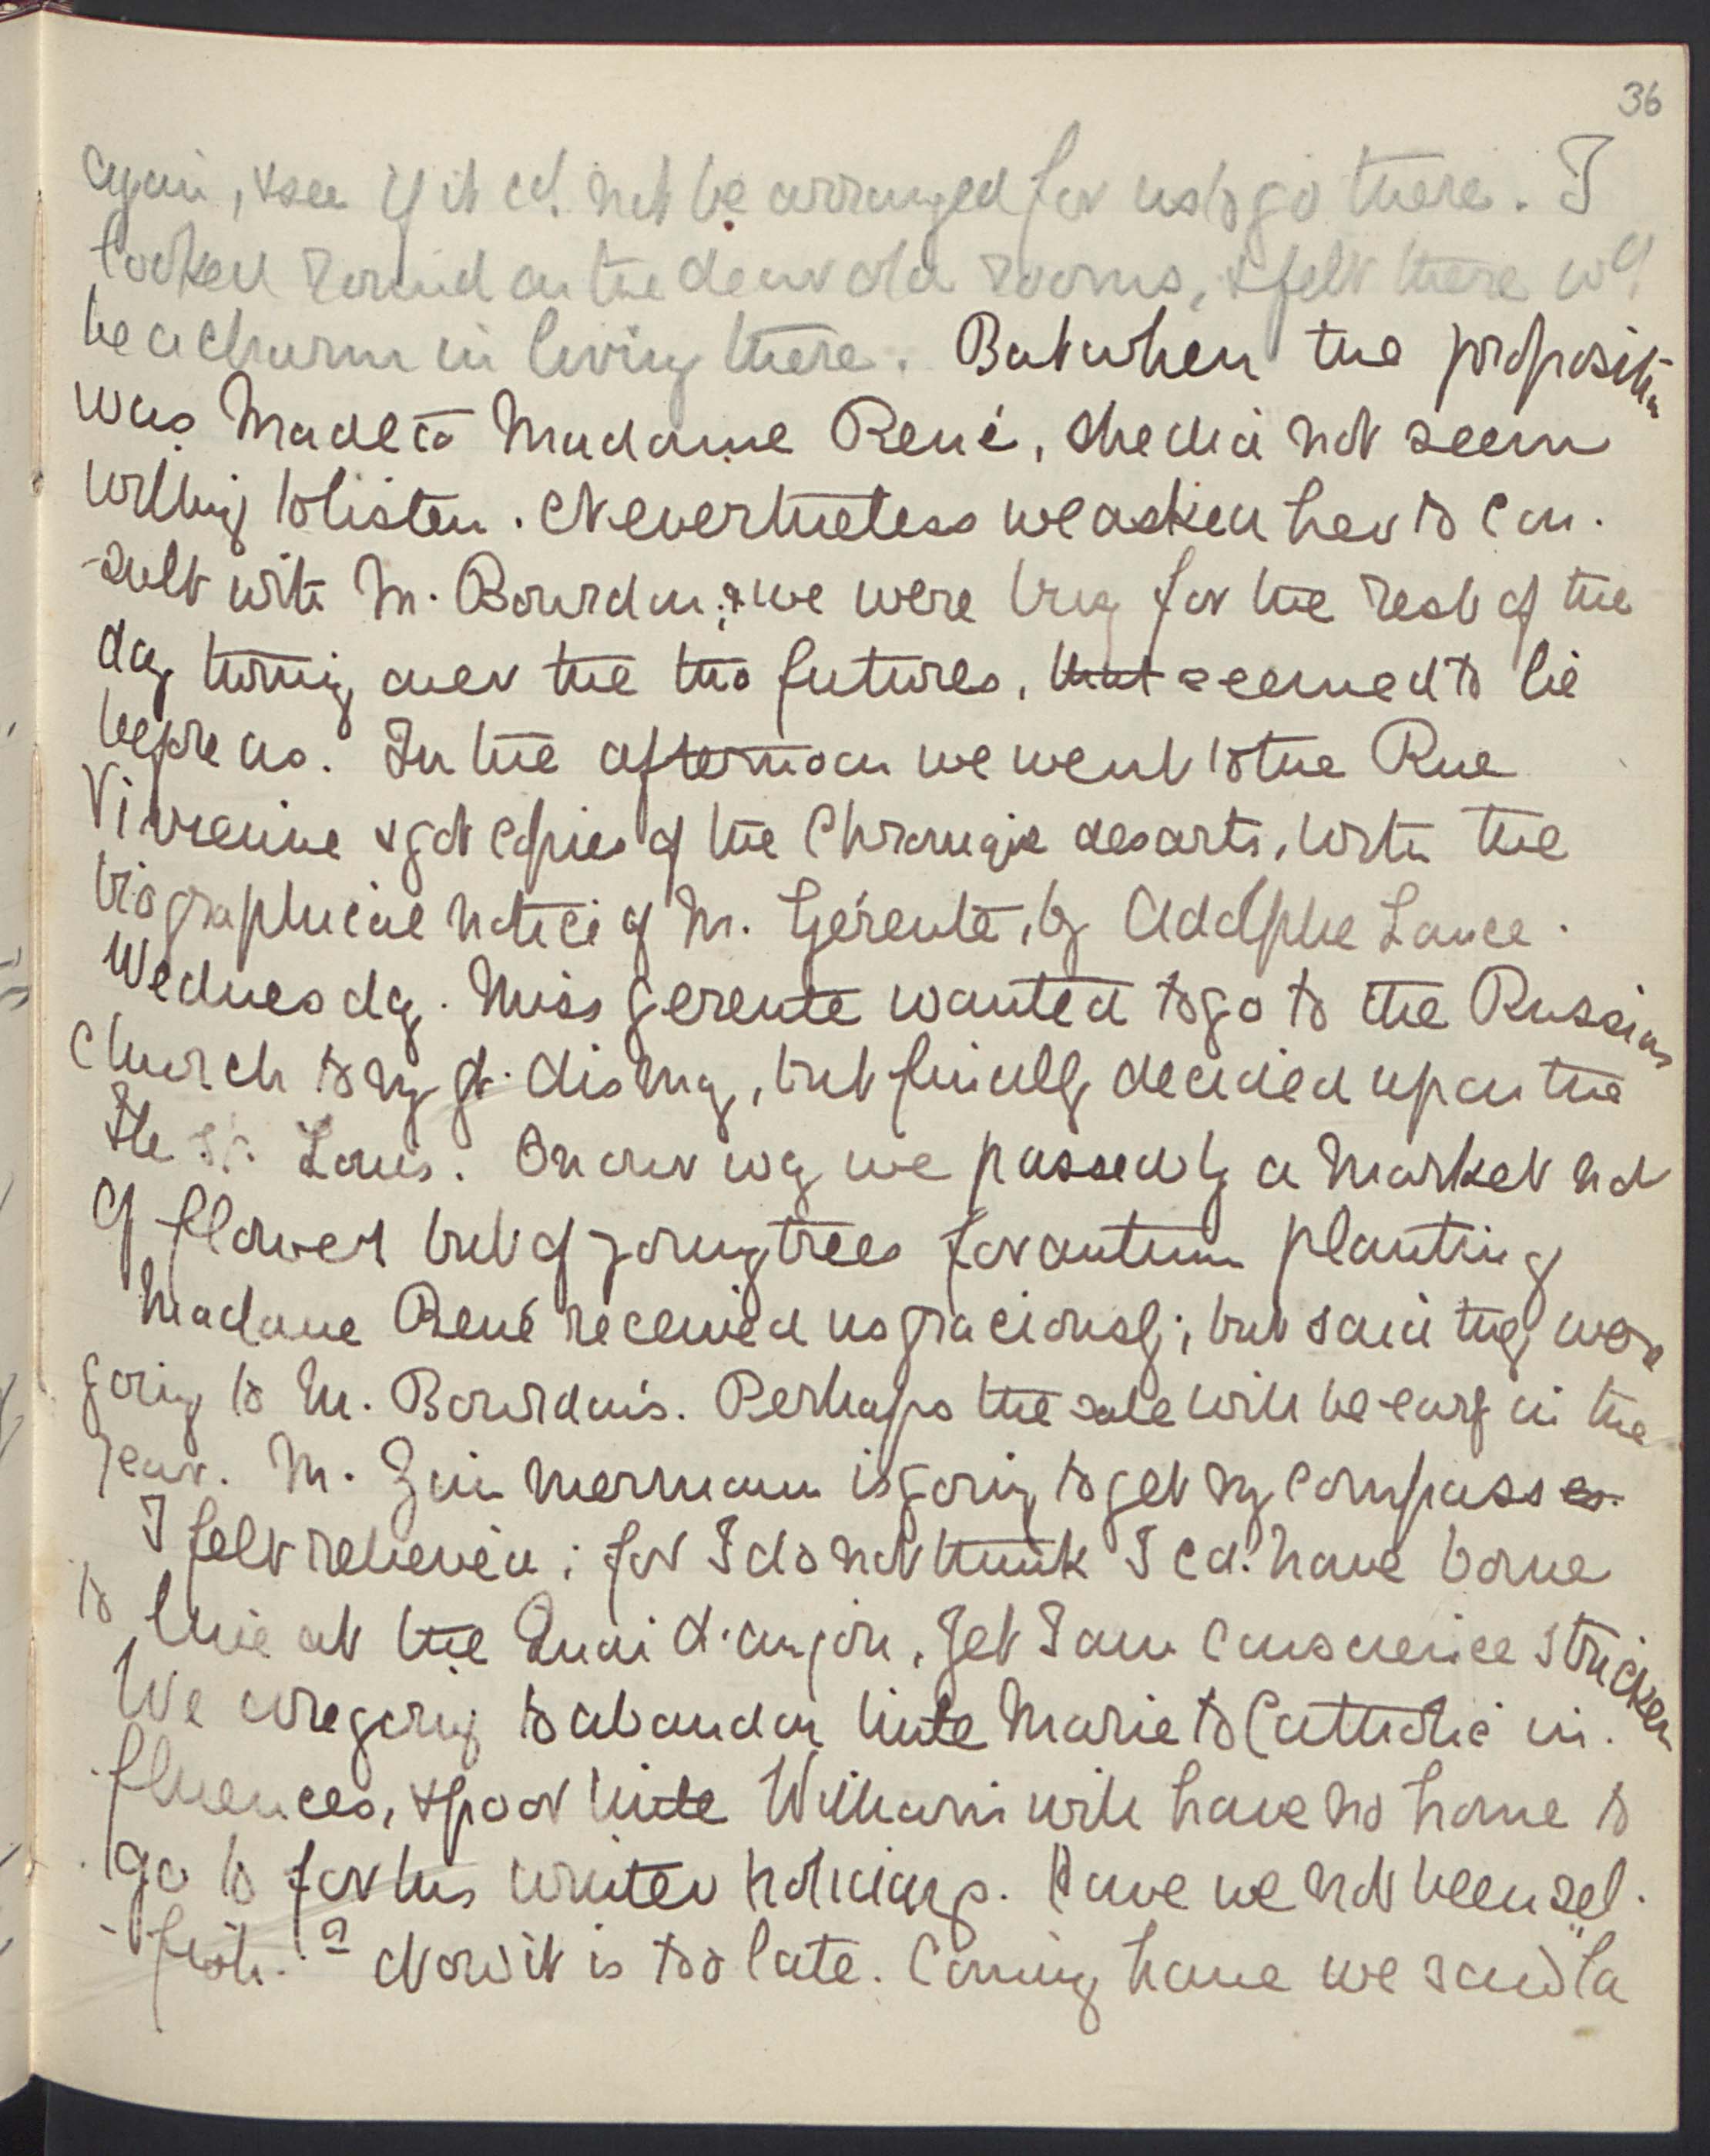 36
again, & see if it cd. not be arranged for us to go there. I
looked round on the dear old rooms, & felt there wd.
be a charm in living there. But when the propositn
was made to Madame René, she did not seem
willing to listen. Nevertheless we asked her to con-
-sult with M. Bourdon; & we were busy for the rest of the
day turning over the two futures, that seemed to lie
before us. In the afternoon we went to the Rue
Vivienne & got copies of the Chronique des arts, with the
biographical notice of M. Gérente, by Adolphe Lance.
Wednesday. Miss Gerente wanted to go to the Russian
Church to my gt. dismay, but finally decided upon the
Ile St. Louis. On our way we passed by a market not
of flowers but of young trees for autumn planting
Madame René received us graciously; but said they were
going to M. Bourdon's. Perhaps the sale will be early in the
year. M. Zimmermann is going to get my compasses.
I felt relieved; for I do not think I cd. have borne
to live at the Quai d'anjou, yet I am conscience stricken
We are going to abandon little Marie to Catholic in-
fluences, & poor little William will have no home to
go to for his winter holidays. Have we not been sel-
-fish? Now it is too late. Coming home we saw "la